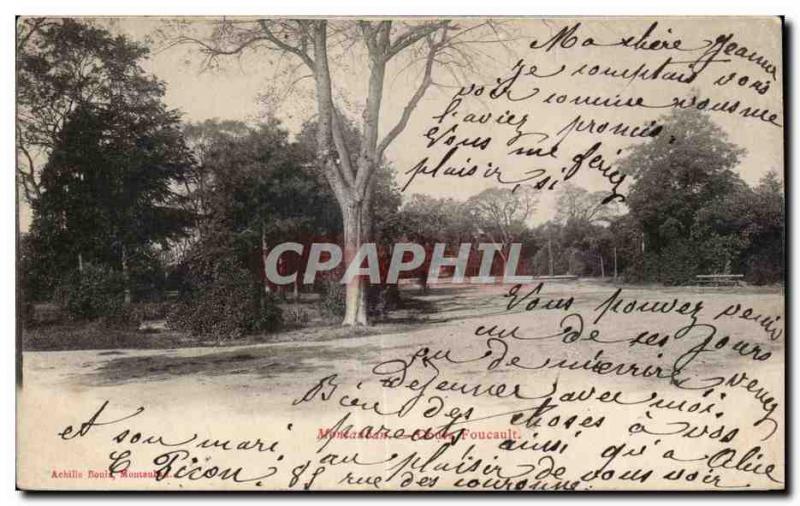 Ma chère Jeanne
je comptais vous
voir comme vous me
l'aviez promis
Vous me feriez
plaisir, si
Vous pouvez venir
un de ses jours
ou de m'écrire venez
Dejeuner avec moi,
Bien des choses à vos
parents ainsi qu'à Alice
Et son mari
au plaisir de vous voir
C Picon, 85 rue des couronne
Montauban. — Cours Foucault.
Achille Bouis, Montauban.
CPAPHIL.COM